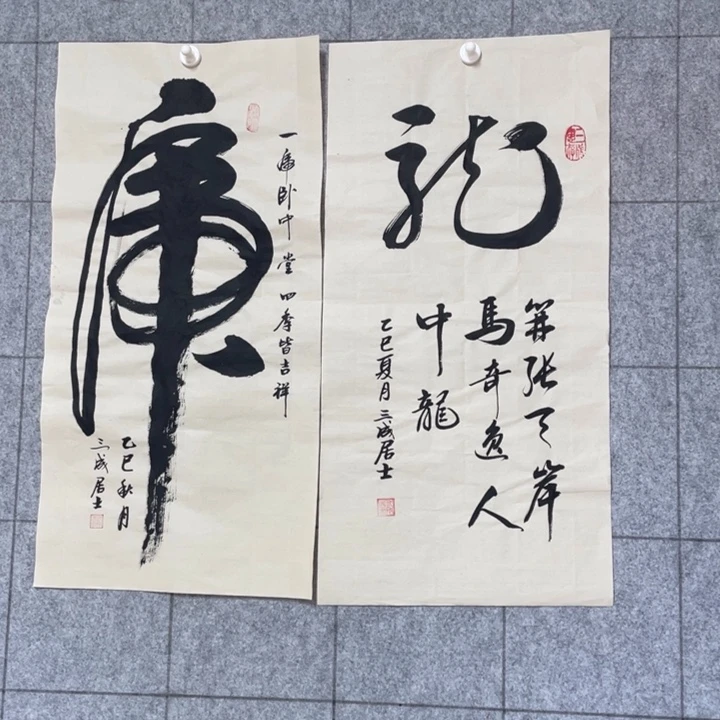 龍
開張天岸
馬奇逸人
中龍
乙巳夏月三成居士
虎
一虎卧中堂 四季皆吉祥
乙巳秋月
三成居士